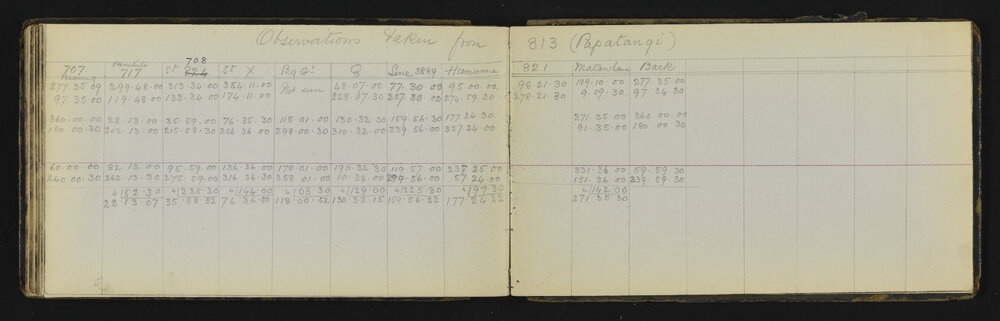 Observations taken from 813 (Papatangi)
708
707 717 St St X Peg G' Line 3889 Hamama 821 Back
Bearing
277.35.09 299.48.00 313.34.00 354.11.00 Not seen 48.07.00 77.30.00 95.00.00 98.21.30 189.10.00 277.35.00
97.35.00 119.48.00 133.34.00 174.11.00 228.07.30 257.30.00 274.59.30 278.21.30 9.09.30 97.34.30
360.00.00 22.13.00 35.59.00 76.35.30 118.01.00 130.32.30 159.56.30 177.24.30 271.35.00 360.00.00
180.00.30 202.13.00 215.58.30 256.36.00 298.00.30 310.32.00 339.56.00 357.24.00 91.35.00 180.00.30
60.00.00 82.13.00 95.59.00 136.36.00 178.01.00 190.32.30 219.57.00 237.25.00 331.36.00 59.59.30
240.00.30 262.13.30 275.59.00 316.36.30 358.01.00 10.32.00 299.56.00 57.24.00 151.36.00 239.59.30
4/52.30 4/235.30 4/144.00 4/03.30 4/129.00 4/225.30 4/97.30 4/142.00
22 13.07 35.58.52 76.36.00 118.00.52 130.32.15 159.56.22 177.24.22 271.35.30